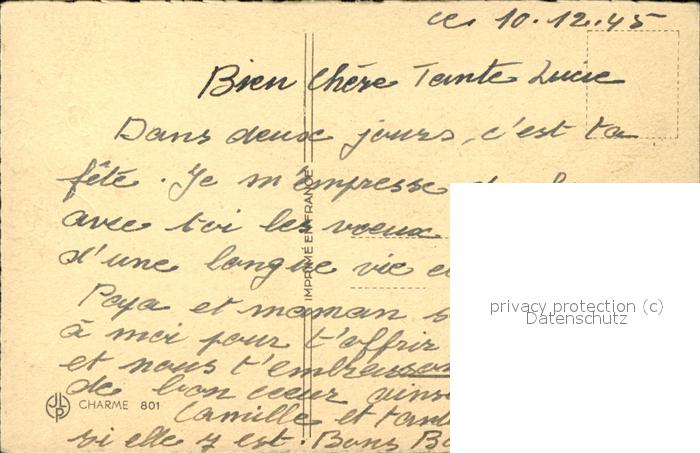 ce 10.12.45
Bien Chère Tante Lucie
Dans deux jours, c'est ta
fête. Je m'empresse de
avec toi les voeux
d'une longue vie
Papa et maman
à moi pour t'offrir
et nous t'embrassons
de bon coeur ains
Camille et tant
si elle y est. Bons
IMPRIMÉ EN FRANCE
JLP
CHARME 801
privacy protection (c)
Datenschutz